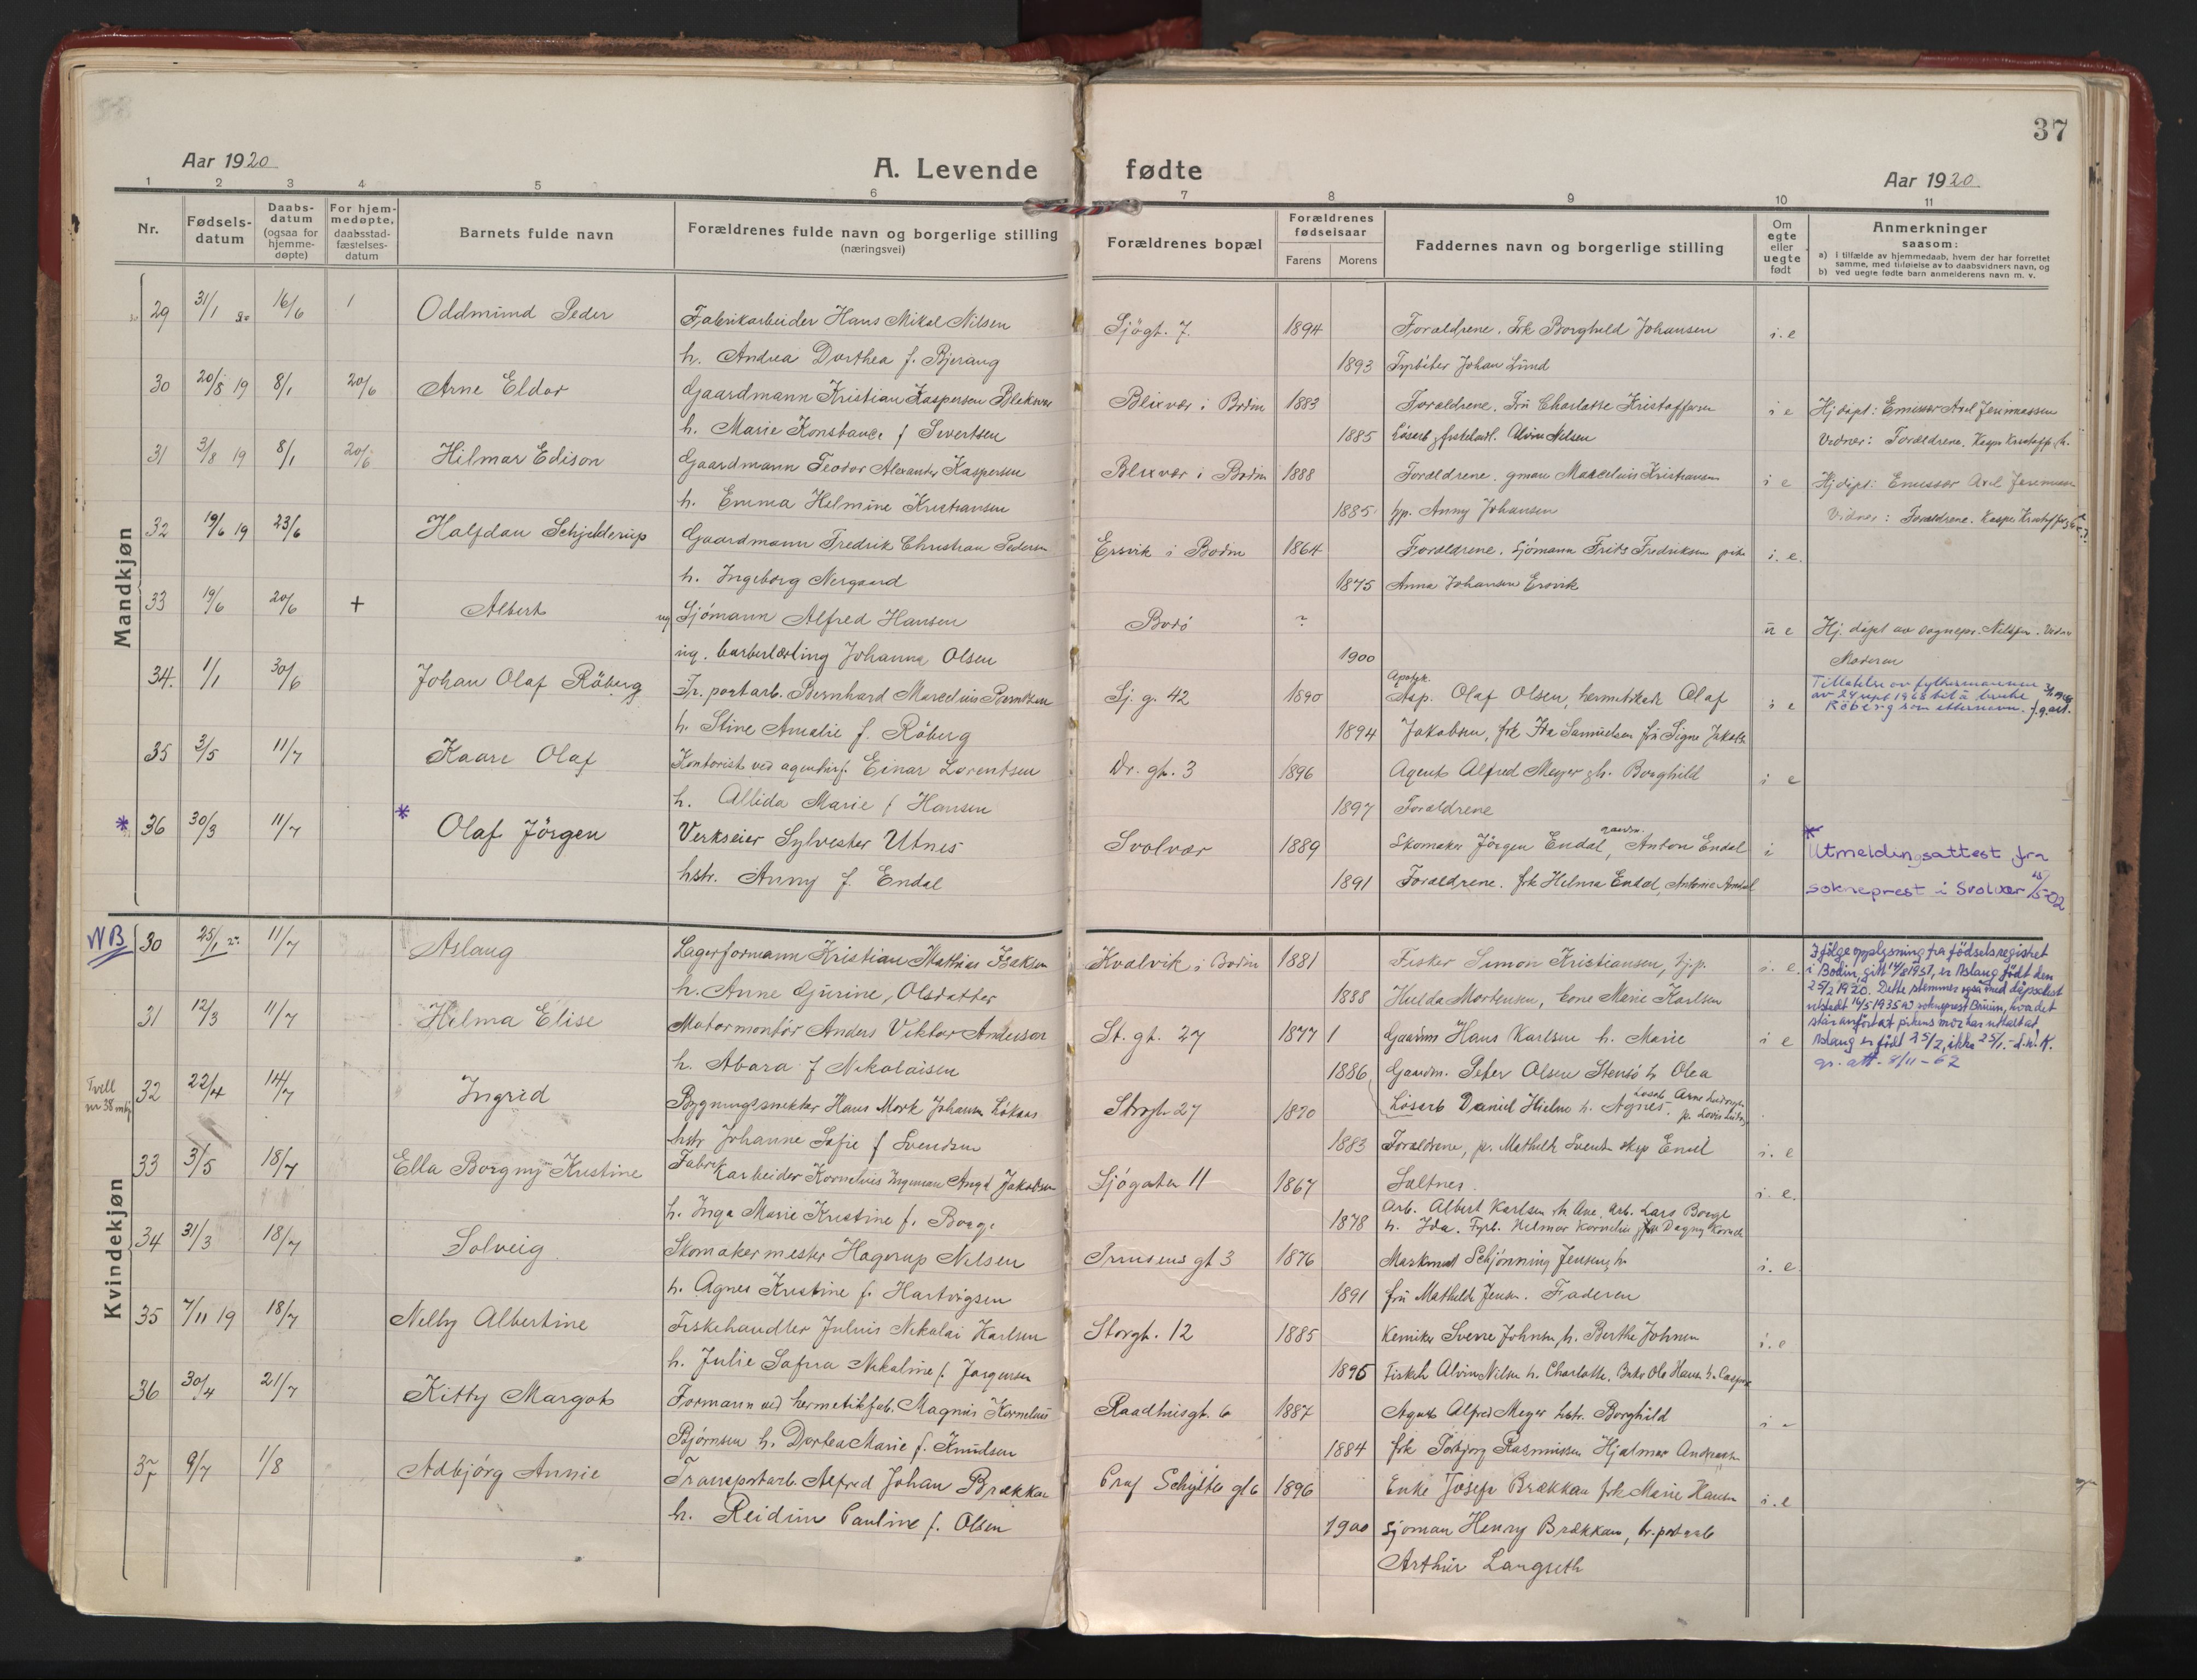 37
Aar 1920
A. Levende fødte
Aar 1920
1 2 3 4 5 6 7 8 9 10 11
Nr.
Fødsels-
datum
Daabs-
datum
(ogsaa for
hjemme-
døpte)
For hjem-
medøpte,
daabsstad-
fæstelses-
datum
Barnets fulde navn
Forældrenes fulde navn og borgerlige stilling
(næringsvei)
Forældrenes bopæl
Forældrenes
fødselsaar
Farens Morens
Faddernes navn og borgerlige stilling
Om
egte
eller
uegte
født
Anmerkninger
saasom:
a) i tilfælde av hjemmedaab, hvem der har forrettet
samme, med tilføielse av to daabsvidners navn, og
b) ved uegte fødte barn anmelderens navn m. v.
Mandkjøn
29 31/1 16/6 Oddmund Peder Fabrikarbeider Hans Mikal Nilsen Sjøgt. 7. 1894 Forældrene. Frk Borghild Johansen i. e
h. Andrea Dorthea f. Bjerang 1893 Fyrbøter Johan Lund
30 20/8 19 8/1 20/6 Arne Eldor Gaardmann Kristian Kaspersen Bleksvær Blixvær i Bodin 1883 Forældrene. Fru Charlotte Kristoffersen i e Hj døpt: Emissær Axel Jensen
h. Marie Konstance f Sivertsen 1885 Alvin Nilsen Vidner: Forældrene.
31 3/8 19 8/1 20/6 Hilmar Edison Gaardmann Teodor Alexander Kaspersen Blixvær i Bodin 1888 Forældrene. gman Marcelius Kristiansen i e Hj døpt: Emissær Axel
h. Emma Helmine Kristiansen 1885 hp. Anny Johansen Vidner: Forældrene.
32 19/6 19 23/6 Halfdan Schjelderup Gaardmann Fredrik Christian Pedersen Ersvik i Bodin 1864 Forældrene. Sjømann Frits Fredriksen i. e.
h. Ingeborg Nergaard 1875 Anna Johansen Ersvik
33 19/6 20/6 + Albert ug Sjømann Alfred Hansen Bodø ? u e Hj. døpt av sognepr. Nilssen. Vidner
ug. barberlærling Johanna Olsen 1900 Moderen
34. 1/1 30/6 Johan Olaf Røberg Tr. portarb. Bernhard Marcelius Berntsen Sj. g. 42 1890 Apotek. Asp. Olaf Olsen, hermetikarb Olaf i e Tillatelse av fylkesmannen
av 24 sept 1968 til å bruke
Røberg som etternavn.
h. Stine Amalie f. Røberg 1894 Jakobsen, frk Ida Samuelsen fru Signe Jakobs
35 3/5 11/7 Kaare Olaf Kontorist ved agenturf. Einar Lorentsen Dr. gt. 3 1896 Agent Alfred Meyer h. Borghild i e
h. Allida Marie f Hansen 1897 Forældrene
* 36 30/3 11/7 * Olaf Jörgen Verkseier Sylvester Utnes Svolvær 1889 Skomaker Jörgen Endal, gaardm. Anton Endal i * Utmeldingsattest fra
hstr. Anny f. Endal 1891 Forældrene. frk Helma Endal, Antonie sokneprest i Svolvær
Kvindekjøn
NB 30 25/1 11/7 Aslaug Lagerformann Kristian Mathias Isaksen Kvalvik i Bodin 1881 Fisker Simon Kristiansen, hj.p. i. e. Ifølge opplysning fra fødselsregistret
i Bodin, gitt 14/8 1951, er Aslaug født den
25/2 1920. Dette stemmer også med dåpsattest
utstedt 16/5 1935 av sokneprest hva det
står anført at pikens mor har uttalt at
Aslaug er født 25/2, ikke 25/1. - d. w. K.
gr. att. 8/11-62
h. Anne Gurine, Olsdatter 1888 Hulda Mortensen, Enne Marie Karlsen
31 12/3 11/7 Helma Elise Motormontør Anders Viktor Anderson St. gt. 27 1877 Gaardm Hans Karlsen h. Marie i e
h. Abara f Nikolaisen 1886 Gaardm. Peter Olsen Stensö h Olea
Tvill nr 38 32 22/4 14/7 Ingrid Bygningssnekker Hans Mork Johansen Storgt 27 1870 Løsarb Daniel Hielm h. Agnes.
hstr Johanne Sofie f Svendsen 1883 Forældrene, pr. Mathilde Svends skip Emil i. e
33 3/5 18/7 Ella Borgny Kristine Fabrikarbeider Kornelius Ingeman Angel Jakobsen Sjøgaten 11 1867 Saltnes. i. e.
h. Inga Marie Kristine f. Borge 1878 Arb. Albert Karlsen h Ane, Arb. Lars Borge
h. Ida. Fyrb. Helmar Kornelius Dagny
34 31/3 18/7 Solveig Skomakermester Hagerup Nilsen Prinsens gt 3 1876 Maskinist Schjønning Jensen, h. i. e.
h. Agnes Kristine f. Hartvigsen 1891 fru Mathilde Jensen. Faderen
35 7/11 19 18/7 Nelly Albertine Fiskehandler Julius Nikolai Karlsen Storgt. 12 1885 Kemiker Sverre Johnsen, h. Berthe Johnsen i. e
h. Julie Sofira Nikoline f. Jørgensen 1895 Fiskeh Alvin Nilsen h. Charlotte.
36 30/4 21/7 Kitty Margot Formann ved hermetikfab. Magnus Kornelius Raadhusgt. 6 1887 Agent Alfred Meyer hstr. Borghild
Bjørnsen h. Dortea Marie f. Knudsen 1884 frk Torbjørg Rasmussen Hjalmar
37 9/7 1/8 Adbjørg Annie Transportarb. Alfred Johan Brækkan Prof Schyttes gt 6 1896 Enke Josefa Brækkan frk Marie Hansen i. e
h. Reidun Pauline f. Olsen 1900 Sjøman Henry Brækkan, tr.portarb
Arthur Langseth